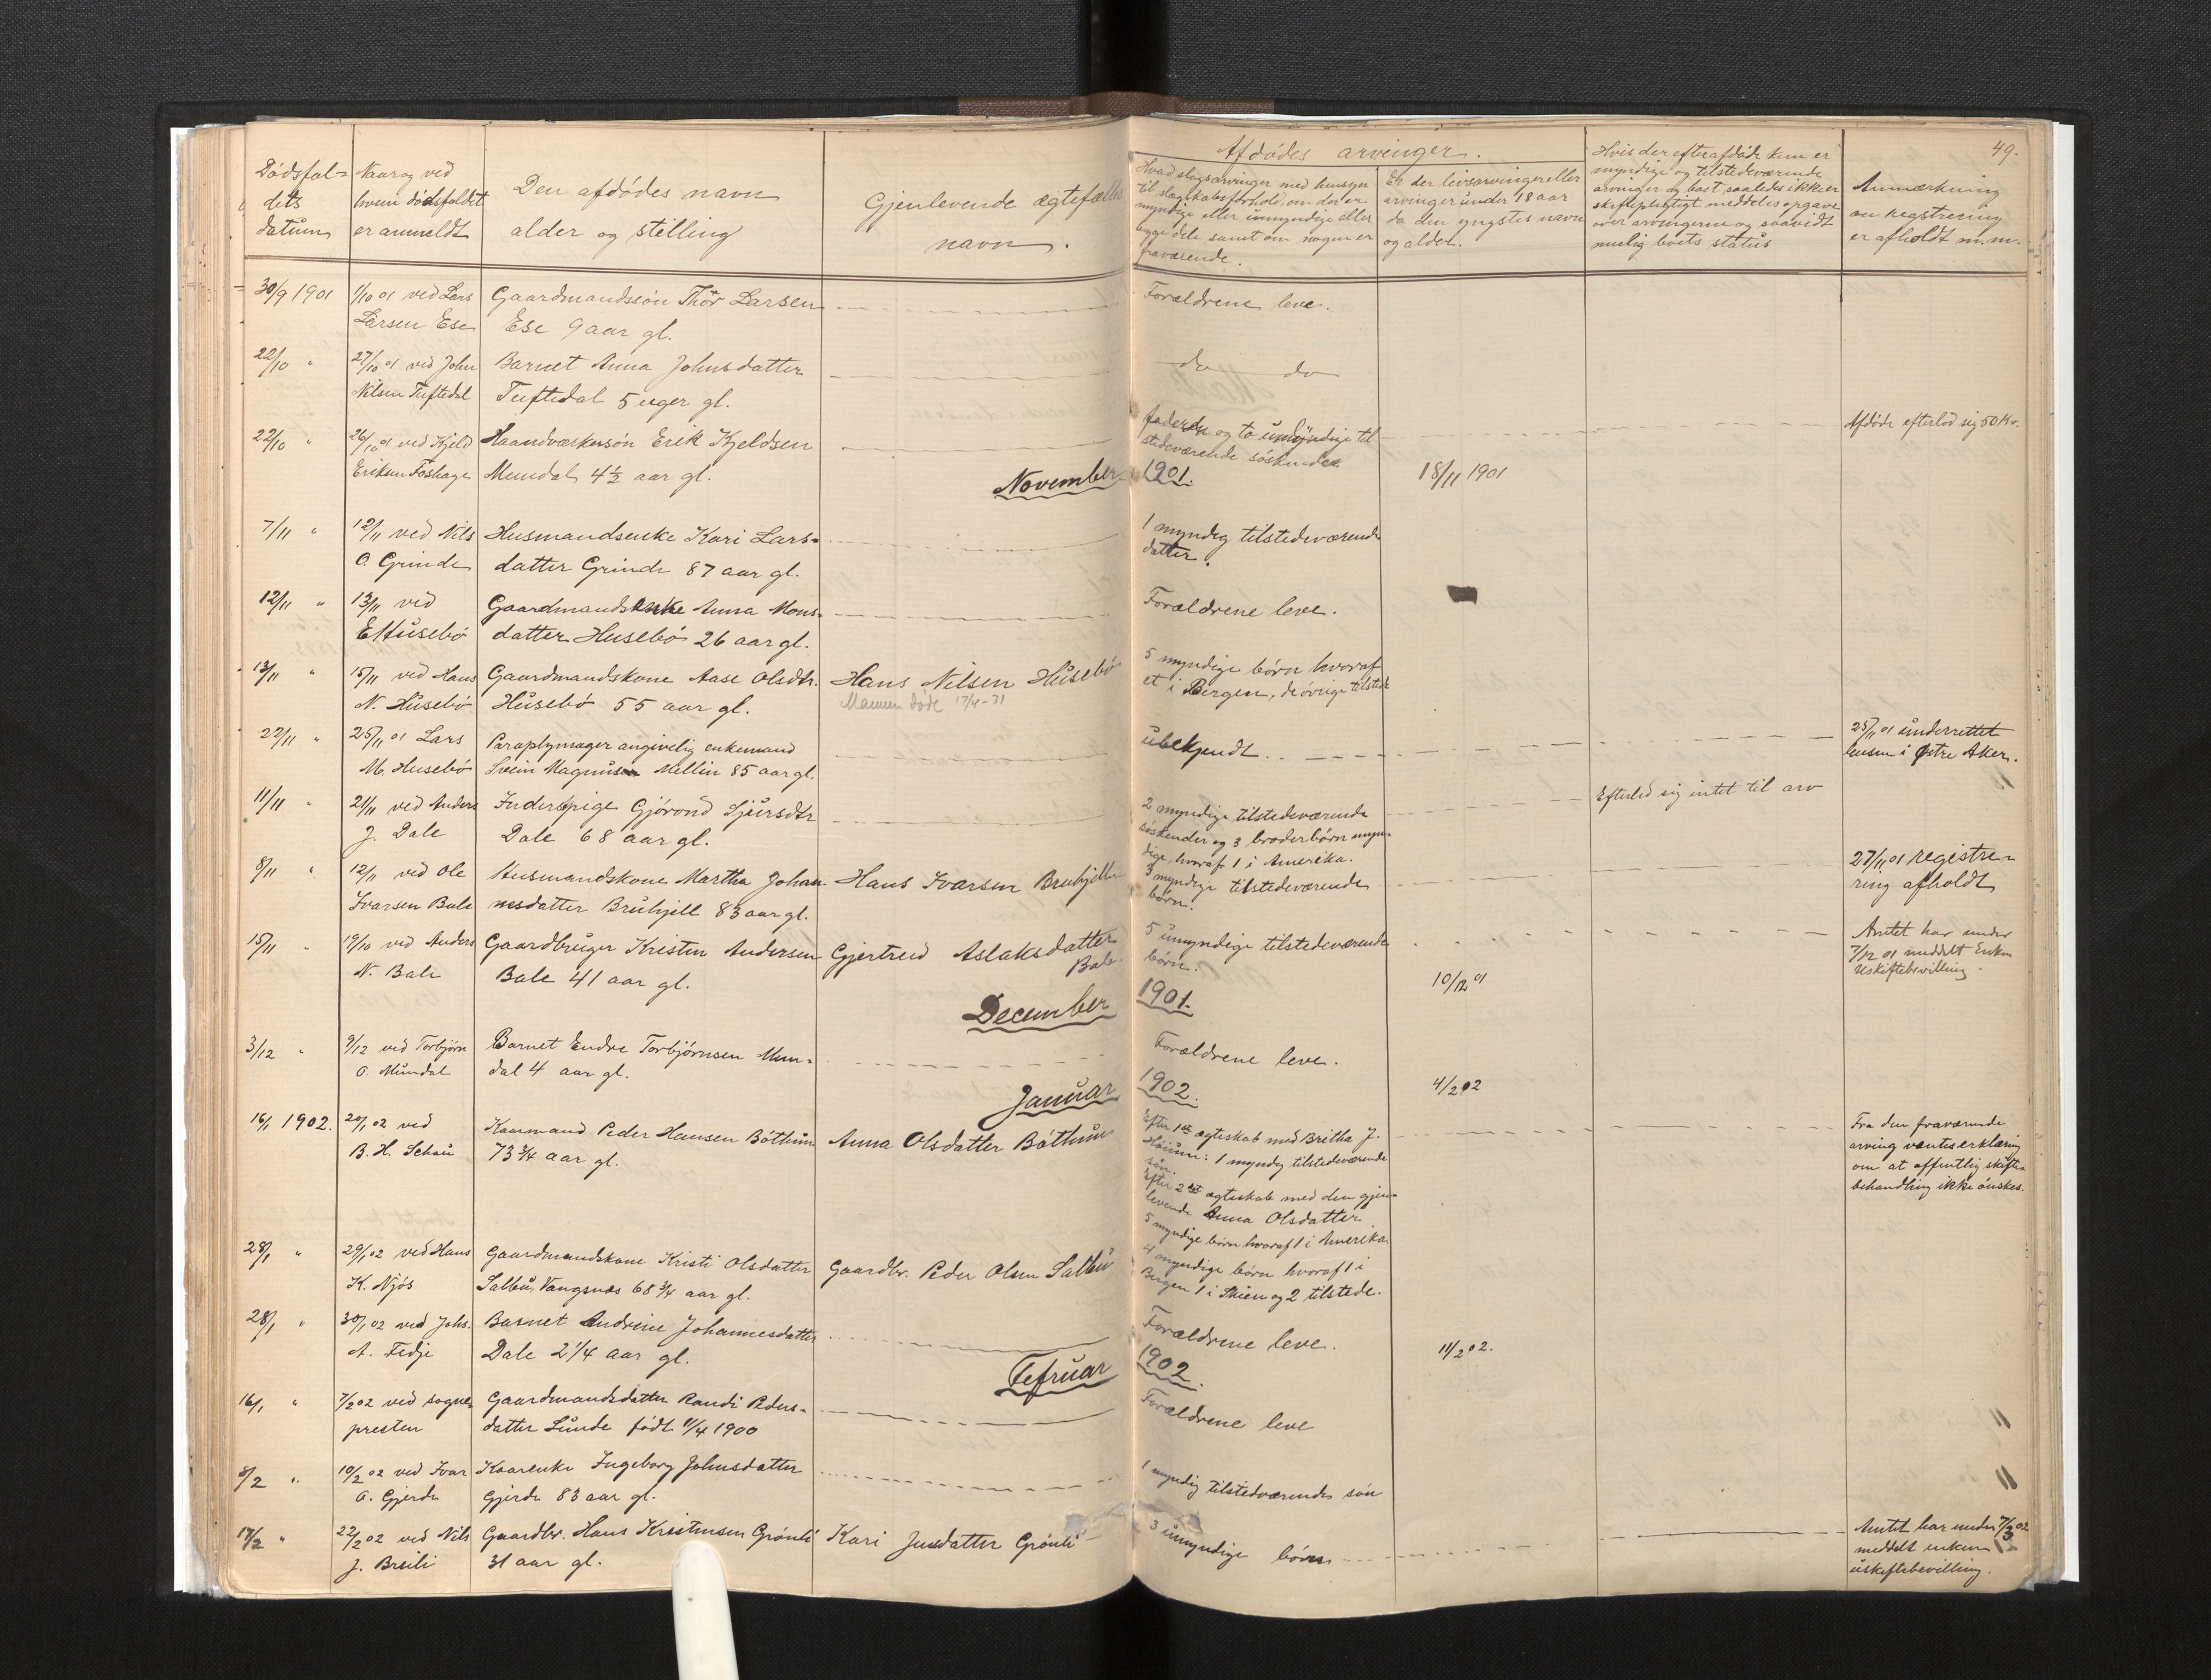 49.
Dødsfal=
dets
datum
Naar og ved
hvem dødsfaldet
er anmeldt
Den afdødes navn
alder og stilling
Gjenlevende ægtefælles
navn.
Afdødes arvinger.
Hvad slags arvinger med hensyn
til slægtskabsforhold, om der er
myndige eller umyndige eller
begge dele samt om nogen er
fraværende.
Er der livsarvinger eller
arvinger under 18 aar
da den yngstes navn
og alder.
Hvis der efter afdøde kun er
myndige og tilstedeværende
arvinger og boet saaledes ikke er
skiftepligtigt meddeles opgave
over arvingerne og saavidt
mulig boets status
Anmærkning
om registrering
er afholdt m.m.
30/9 1901
1/10 01 ved Lars
Larsen Ese
Gaardmandssøn Thor Larsen
Ese 9 aar gl.
Forældrene leve.
22/10 "
27/10 01 ved John
Nilsen Tuftedal
Barnet Anna Johnsdatter
Tuftedal 5 uger gl.
do do
22/10 "
26/10 01 ved Kjeld
Eriksen Foshage
Haandværkersøn Erik Kjeldsen
Mundal 4 1/2 aar gl.
faderen og to umyndige til
stedeværende søskende.
Afdøde efterlod sig 50 Kr.
November 1901.
18/11 1901
7/11 "
12/11 ved Nils
O. Grinde
Husmandsenke Kari Lars=
datter Grinde 87 aar gl.
1 myndig tilstedeværende
datter.
12/11 "
13/11 ved
E Husebø
Gaardmandsenke Anna Mons=
datter Husebø 26 aar gl.
Forældrene leve.
13/11 "
15/11 ved Hans
N. Husebø
Gaardmandskone Aase Olsdtr.
Husebø 55 aar gl.
Hans Nilsen Husebø
Mannen døde 17/4-31
5 myndige børn hvoraf
et i Bergen, de øvrige tilstede
22/11 "
25/11 01 Lars
M. Husebø
Paraplymager angivelig enkemand
Svein Magnusen Mellin 85 aar gl.
ubekjendt.
25/11 01 underrettet
lensm i Østre Aker.
11/11 "
21/11 ved Anders
J. Dale
Inderstpige Gjørond Sjursdtr
Dale 68 aar gl.
2 myndige tilstedeværende
søskender og 3 broderbørn myn=
dige, hvoraf 1 i Amerika.
Efterlod sig intet til arv
8/11 "
12/11 ved Ole
Ivarsen Bale
Husmandskone Martha Johan
nesdatter Bruhjell 83 aar gl.
Hans Ivarsen Bruhjell
3 myndige tilstedeværende
børn.
27/11 01 registre=
ring afholdt
15/11 "
19/10 ved Anders
N. Bale
Gaardbruger Kristen Andersen
Bale 41 aar gl.
Gjertrud Aslaksdatter
Bale
5 umyndige tilstedeværende
børn.
Amtet har under
7/12 01 meddelt Enken
Uskiftebevilling.
December 1901.
10/12 01
3/12 "
9/12 ved Torbjørn
O. Mundal
Barnet Endre Torbjørnsen Mun=
dal 4 aar gl.
Forældrene leve.
Januar 1902.
4/2 02
16/1 1902.
20/1 02 ved
B. H. Schau
Kaarmand Peder Hansen Bøthun
73 3/4 aar gl.
Anna Olsdatter Bøthun
Efter 1ste ægteskab med Britha J.
Høium: 1 myndig tilstedeværende
søn.
Efter 2det ægteskab med den gjen=
levende Anna Olsdatter
5 myndige børn hvoraf 1 i Amerika.
Fra den fraværende
arving ventes erklæring
om at offentlig skifte=
behandling ikke ønskes.
28/1 "
29/1 02 ved Hans
K. Njøs
Gaardmandskone Kristi Olsdatter
Salbu, Vangsnes 68 3/4 aar gl.
Gaardbr. Peder Olsen Salbu
4 myndige børn hvoraf 1 i
Bergen 1 i Skien og 2 tilstede.
28/1 "
30/1 02 ved Johs.
A. Fedje
Barnet Andrine Johannesdatter
Dale 2 1/4 aar gl.
Forældrene leve.
Fefruar 1902.
11/2 02.
16/1 "
7/2 02 ved sogne=
presten
Gaardmandsdatter Randi Peders=
datter Lunde født 11/4 1900
Forældrene leve
8/2 "
10/2 02 ved Ivar
O. Gjerde
Kaarenke Ingeborg Johnsdatter
Gjerde 83 aar gl.
1 myndig tilstedværende søn
17/2 "
22/2 02 ved Nils
J. Breili
Gaardbr. Hans Kristensen Grønli
31 aar gl.
Kari Jensdatter Grønli
3 umyndige børn
Amtet har under 7/3 02
meddelt enken
uskiftebevilling.